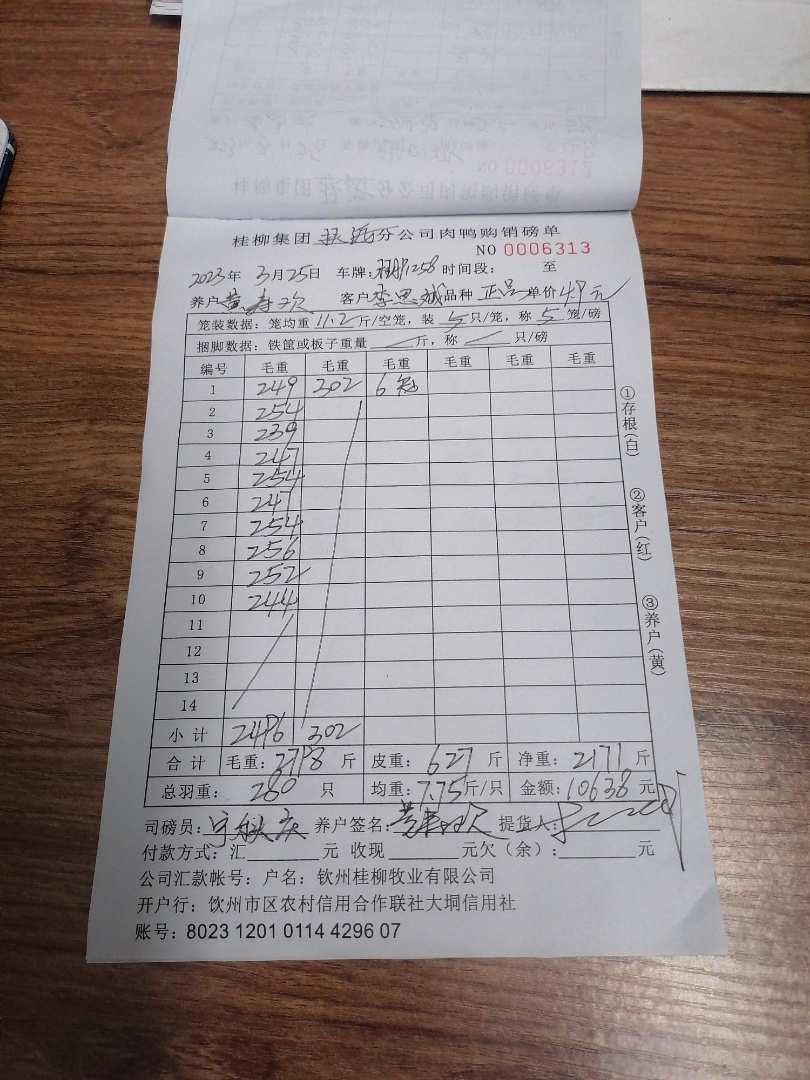 桂柳集团 分公司肉鸭购销磅单
NO 0006313
2023年 3月25日 车牌: 1258 时间段: 至
养户 黄寿欢 客户 李思斌 品种 正品 单价 4.9元
笼装数据: 笼均重 11.2 斤/空笼, 装 5 只/笼, 称 5 笼/磅
捆脚数据: 铁筐或板子重量 斤, 称 只/磅
编号 毛重 毛重 毛重 毛重 毛重 毛重
1 249 302 6
2 254
3 239
4 247
5 254
6 247
7 254
8 256
9 252
10 244
11
12
13
14
小计 2496 302
合计 毛重: 2798 斤 皮重: 627 斤 净重: 2171 斤
总羽重: 280 只 均重: 7.75 斤/只 金额: 10638 元
司磅员: 养户签名: 提货人:
付款方式: 汇 元 收现 元欠(余): 元
公司汇款帐号: 户名: 钦州桂柳牧业有限公司
开户行: 钦州市区农村信用合作联社大垌信用社
账号: 8023 1201 0114 4296 07
①存根(白)
②客户(红)
③养户(黄)